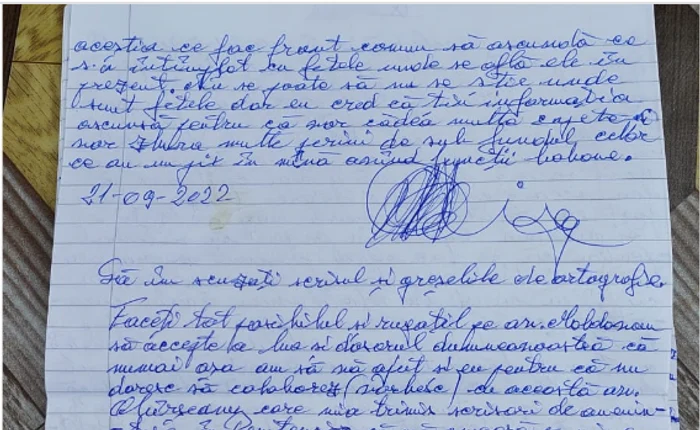 aceștia ce fac front comun să ascundă ce
s-a întîmplat cu fetele unde se află ele în
prezent. Nu se poate să nu se știe unde
sunt fetele dar eu cred că țin informația
ascunsă pentru că sor cădea multe capete și
sor zbura multe perini de sub fundul celor
ce au un pix în mînă avînd funcții babane.
21-09-2022
Să îm scuzați scrisul și greșelile de ortografie.
Faceți tot posibilul și rugațil pe av.
să accepte a lua și dosarul dumneavoastră că
numai așa am să vă ajut și eu pentru că nu
doresc să colaborez (vorbesc) cu această av.
care mia trimis scrisori de amenin-